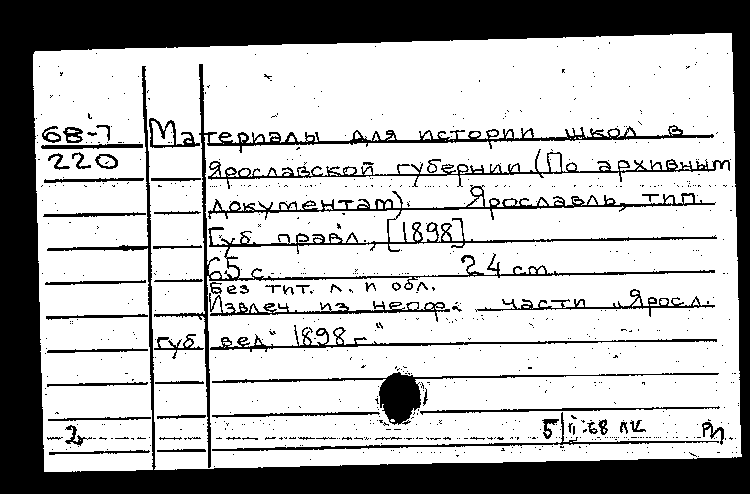 68-7 Материалы для истории школ в
220 Ярославской губернии. (По архивным
документам). Ярославль, тип.
Губ. правл., [1898]
65 с. 24 см.
Без тит. л. и обл.
Извлеч. из неоф. части „Яросл.
губ. вед." 1898 г."
2 5/II-68 ЛК